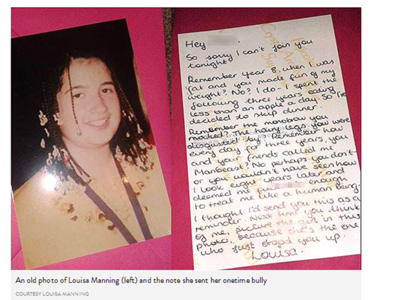 Hey
So sorry I can't join you
tonight
Remember year 8, when I was
fat and you made fun of my
weight? No? I do - I spent the
following three years eating
less than an apple a day. So I've
decided to skip dinner.
Remember the monobrow you
mocked? The hairy legs you were
disgusted by? Remember how
every day for three years, you
and your friends called me
Manbeast? No perhaps you don't-
or you wouldn't have seen how
I look eight years later and
deemed me enough
to treat me like a human being.
I thought I'd send you this as a
reminder. Next time you think
of me, picture the in this
photo, because she's the one
who just stood you up.
Louisa.
An old photo of Louisa Manning (left) and the note she sent her onetime bully
COURTESY LOUISA MANNING